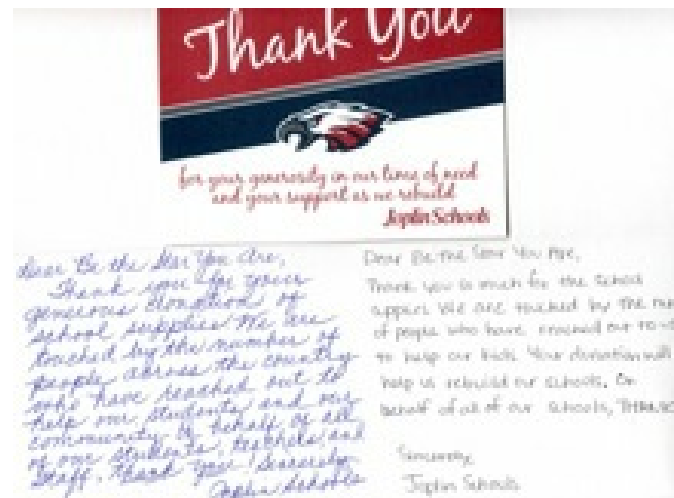 Thank You
for your generosity in our time of need
and your support as we rebuild
Joplin Schools
Dear Be the Star You Are,
Thank you for your
generous donation of
school supplies. We are
touched by the number of
people across the country
who have reached out to
help our students and our
community. On behalf of all
of our students, teachers and
staff, thank you! Sincerely
Joplin Schools
Dear Be the Star You Are,
Thank you so much for the school
supplies. We are touched by the
of people who have reached out to
to help our kids. Your donation will
help us rebuild our schools. On
behalf of all of our schools,
Sincerely,
Joplin Schools